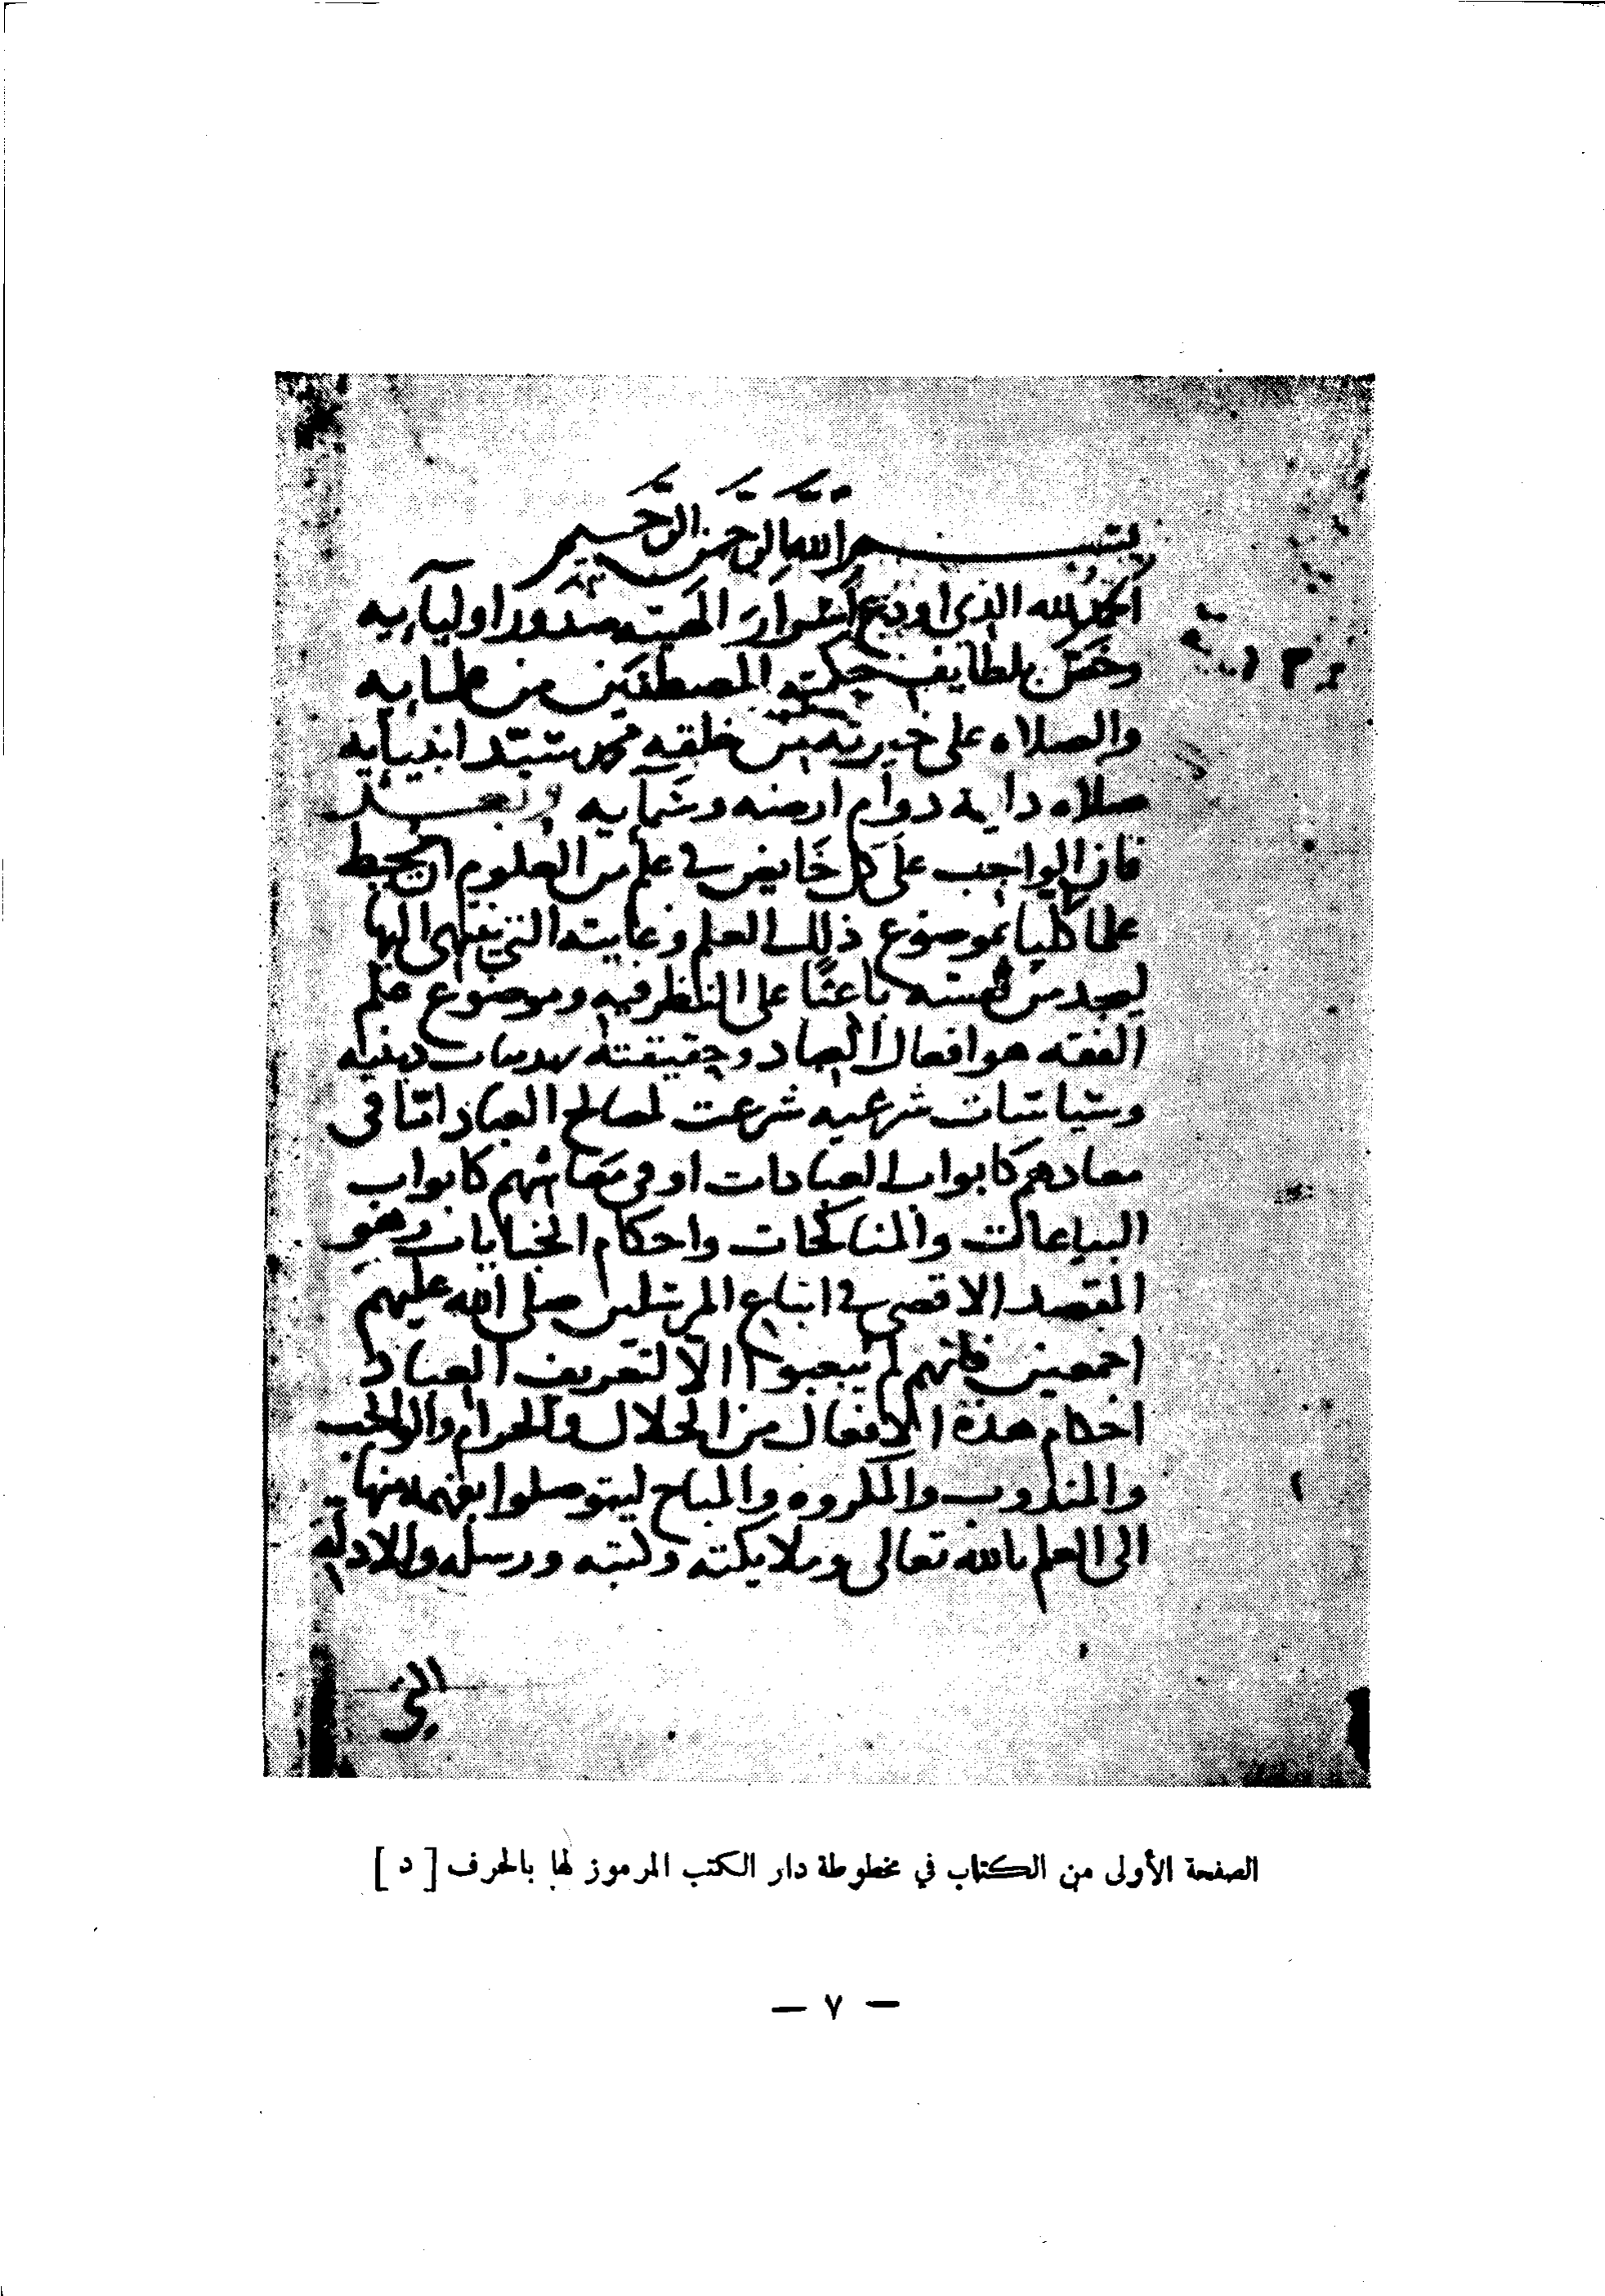 بسم الله الرحمن الرحيم
الحمد لله الذى اودع اسرار المحبته صدور اوليآيه
وخص بلطايف حكمته المصطفين من
والصلاه على خيرته من خلقه محمد سيد انبيايه
صلاه دايمة دوام ارضه وسمآيه وبعد
فان الواجب على كل خايض فى علم من العلوم ان يحيط
علما كليا بموضوع ذلك العلم وغايته التى ينتهى اليها
ليجد من نفسه باعثا على النظر فيه وموضوع علم
الفقه هو افعال العباد وحقيقته دينيه
وسياسات شرعيه شرعت لمصالح العباد اما فى
معادهم كابواب العبادات او فى معاشهم كابواب
البياعات والمناكحات واحكام الجنايات وهو
المقصد الاقصى فى اتباع المرسلين صلى الله عليهم
اجمعين فانهم لم يبعثوا الا لتعريف العباد
احكام هذه الافعال من الحلال والحرام والواجب
والمندوب والمكروه والمباح ليتوصلوا بفهمه منها
الى العلم بالله تعالى وملايكته وكتبه ورسله والادلة
التى
الصفحة الأولى من الكتاب في مخطوطة دار الكتب المرموز لها بالحرف [ د ]
— ٧ —